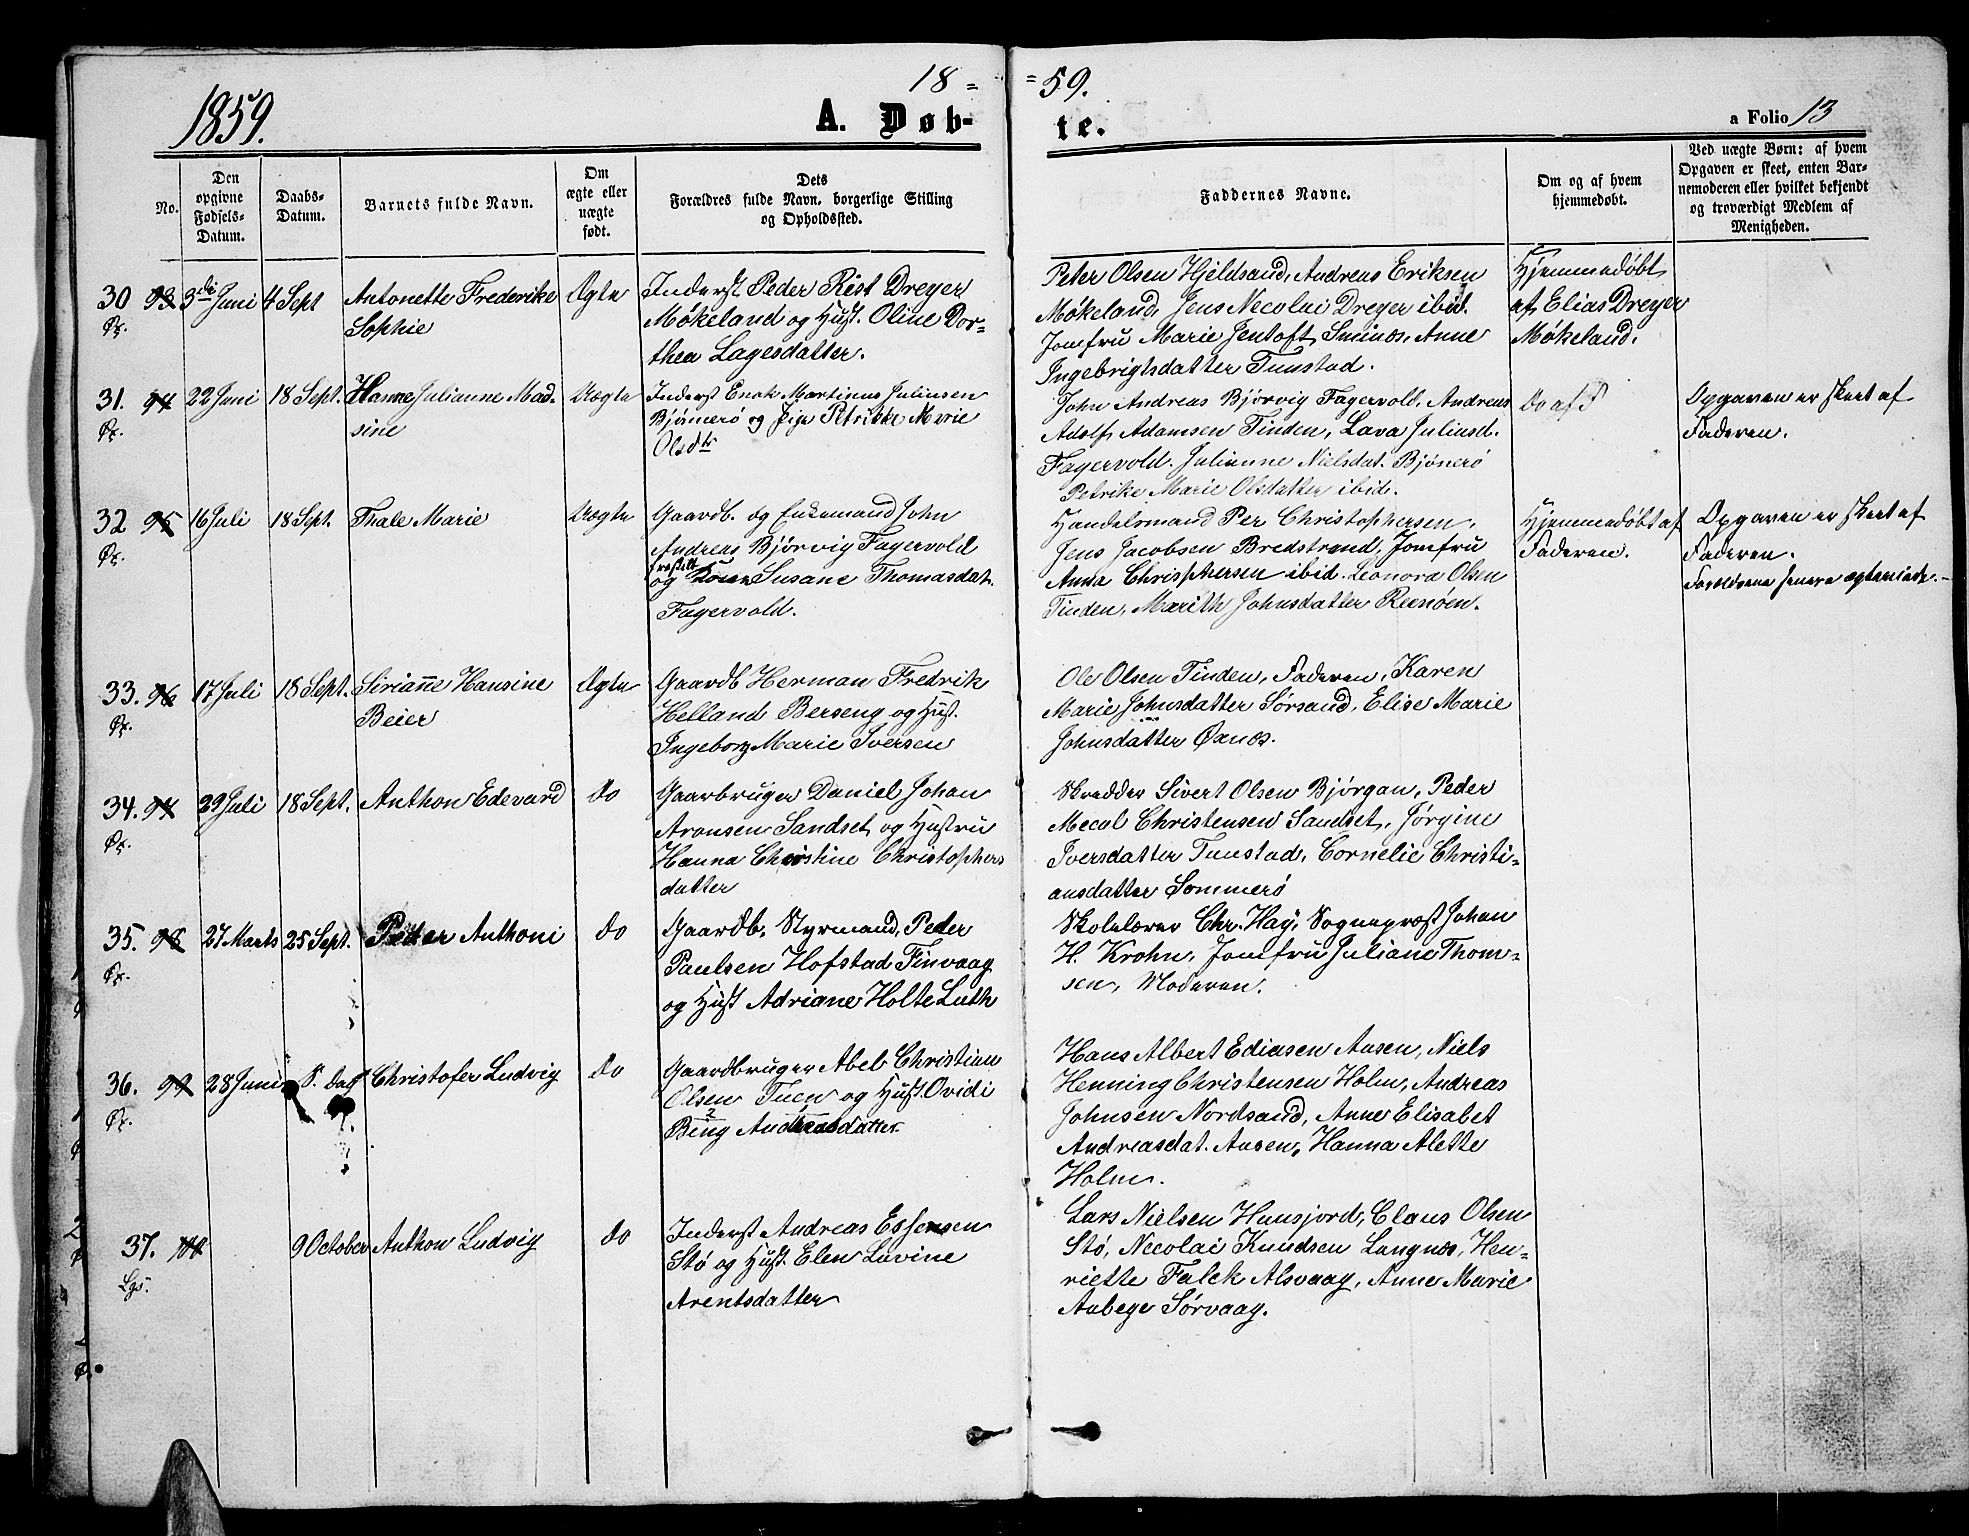 18 =
= 59.
1859.
A. Døb-
te.
a Folio 13
No.
Den
opgivne
Fødsels-
Datum.
Daabs-
Datum.
Barnets fulde Navn.
Om
ægte eller
uægte
født.
Dets
Forældres fulde Navn, borgerlige Stilling
og Opholdssted.
Faddernes Navne.
Om og af hvem
hjemmedøbt.
Ved uægte Børn: af hvem
Opgaven er skeet, enten Bar-
nemoderen eller hvilket bekjendt
og troværdigt Medlem af
Menigheden.
30 93 3die Juni 4 Sept Antonette Frederike
Sophie
Øx.
Ægte
Inderst Peder Rist Dreyer
Møkeland og Hust. Oline Dor-
thea Lagesdatter.
Peter Olsen Hjeldsand, Andreas Eriksen
Møkeland, Jens Necolai Dreyer ibid.
Jomfru Marie Jentoft Smines, Anne
Ingebrigtsdatter Tunstad.
Hjemmedøbt
af Elias Dreyer
Møkeland.
31. 94 22 Juni 18 Sept. Hanne Julianne Mad-
sine
Øx.
Uægte
Inderst Enok Martinus Juliusen
Bjørnerö og Pige Petrikke Marie
Olsdtr
John Andreas Bjørvig Fagervold, Andreas
Adolf Adamsen Tinden, Lava Juliusd.
Fagervold. Julianne Nielsdat. Bjönerö
Petrike Marie Olsdatter ibid.
Do af
Opgaven er skeet af
Faderen.
32 95 16 Juli 18 Sept. Thale Marie
Øx.
Uægte
Gaardb. og Enkemand John
Andreas Bjørvig Fagervold
fraskilt
og Kone Susane Thomasdat.
Fagervold.
Handelsmand Per Christophersen,
Jens Jacobsen Bredstrand, Jomfru
Anna Christphersen ibid. Leonora Olsen
Tinden, Marith Johnsdatter Reenöen.
Hjemmedøbt af
Faderen.
Opgaven er skeet af
Faderen.
Forældrene senere ægteviede.
33. 96 17 Juli 18 Sept. Sirianne Hansine
Beier
Øx.
Ægte
Gaardb Herman Fredrik
Helland Berseng og Hust.
Ingeborg Marie Iversen
Ole Olsen Tinden, Faderen, Karen
Marie Johnsdatter Sörsand, Elise Marie
Johnsdatter Øxnes.
34. 97 29 Juli 18 Sept. Anthon Edevard
Øx.
do
Gaarbruger Daniel Johan
Aronsen Sandset og Hustru
Hanna Christine Christophers
datter
Skredder Sivert Olsen Bjørgan, Peder
Mecal Christensen Sandset, Jørgine
Iversdatter Tunstad, Cornelie Christi-
ansdatter Sommerö
35. 98 27 Marts 25 Sept. Peder Anthoni
Øx.
do
Gaardb. Styrmand, Peder
Paulsen Hofstad Finvaag
og Hust Adriane Holte Luth
Skolelærer Chr. Hay, Sognepræst Johan
H. Krohn, Jomfru Juliane Thom-
sen, Moderen.
36. 99 28 Juni S. dag Christofer Ludvig
Øx.
do
Gaardbruger Abel Christian
Olsen Tuen og Hust. Ovidi
Beng Andreasdatter
Hans Albert Ediasen Aasen, Niels
Henning Christensen Holm, Andreas
Johnsen Nordsand, Anne Elisabet
Andreasdat. Aasen, Hanna Alette
Holm.
37. 100 9 October Anthon Ludvig
Lgs.
do
Inderst Andreas Essensen
Stø og Hust. Elen Lovine
Arentsdatter
Lars Nielsen Hunsjord, Claus Olsen
Stø, Necolai Knudsen Langnes, Hen-
riette Falck Alsvaag, Anne Marie
Aabege Sörvaag.